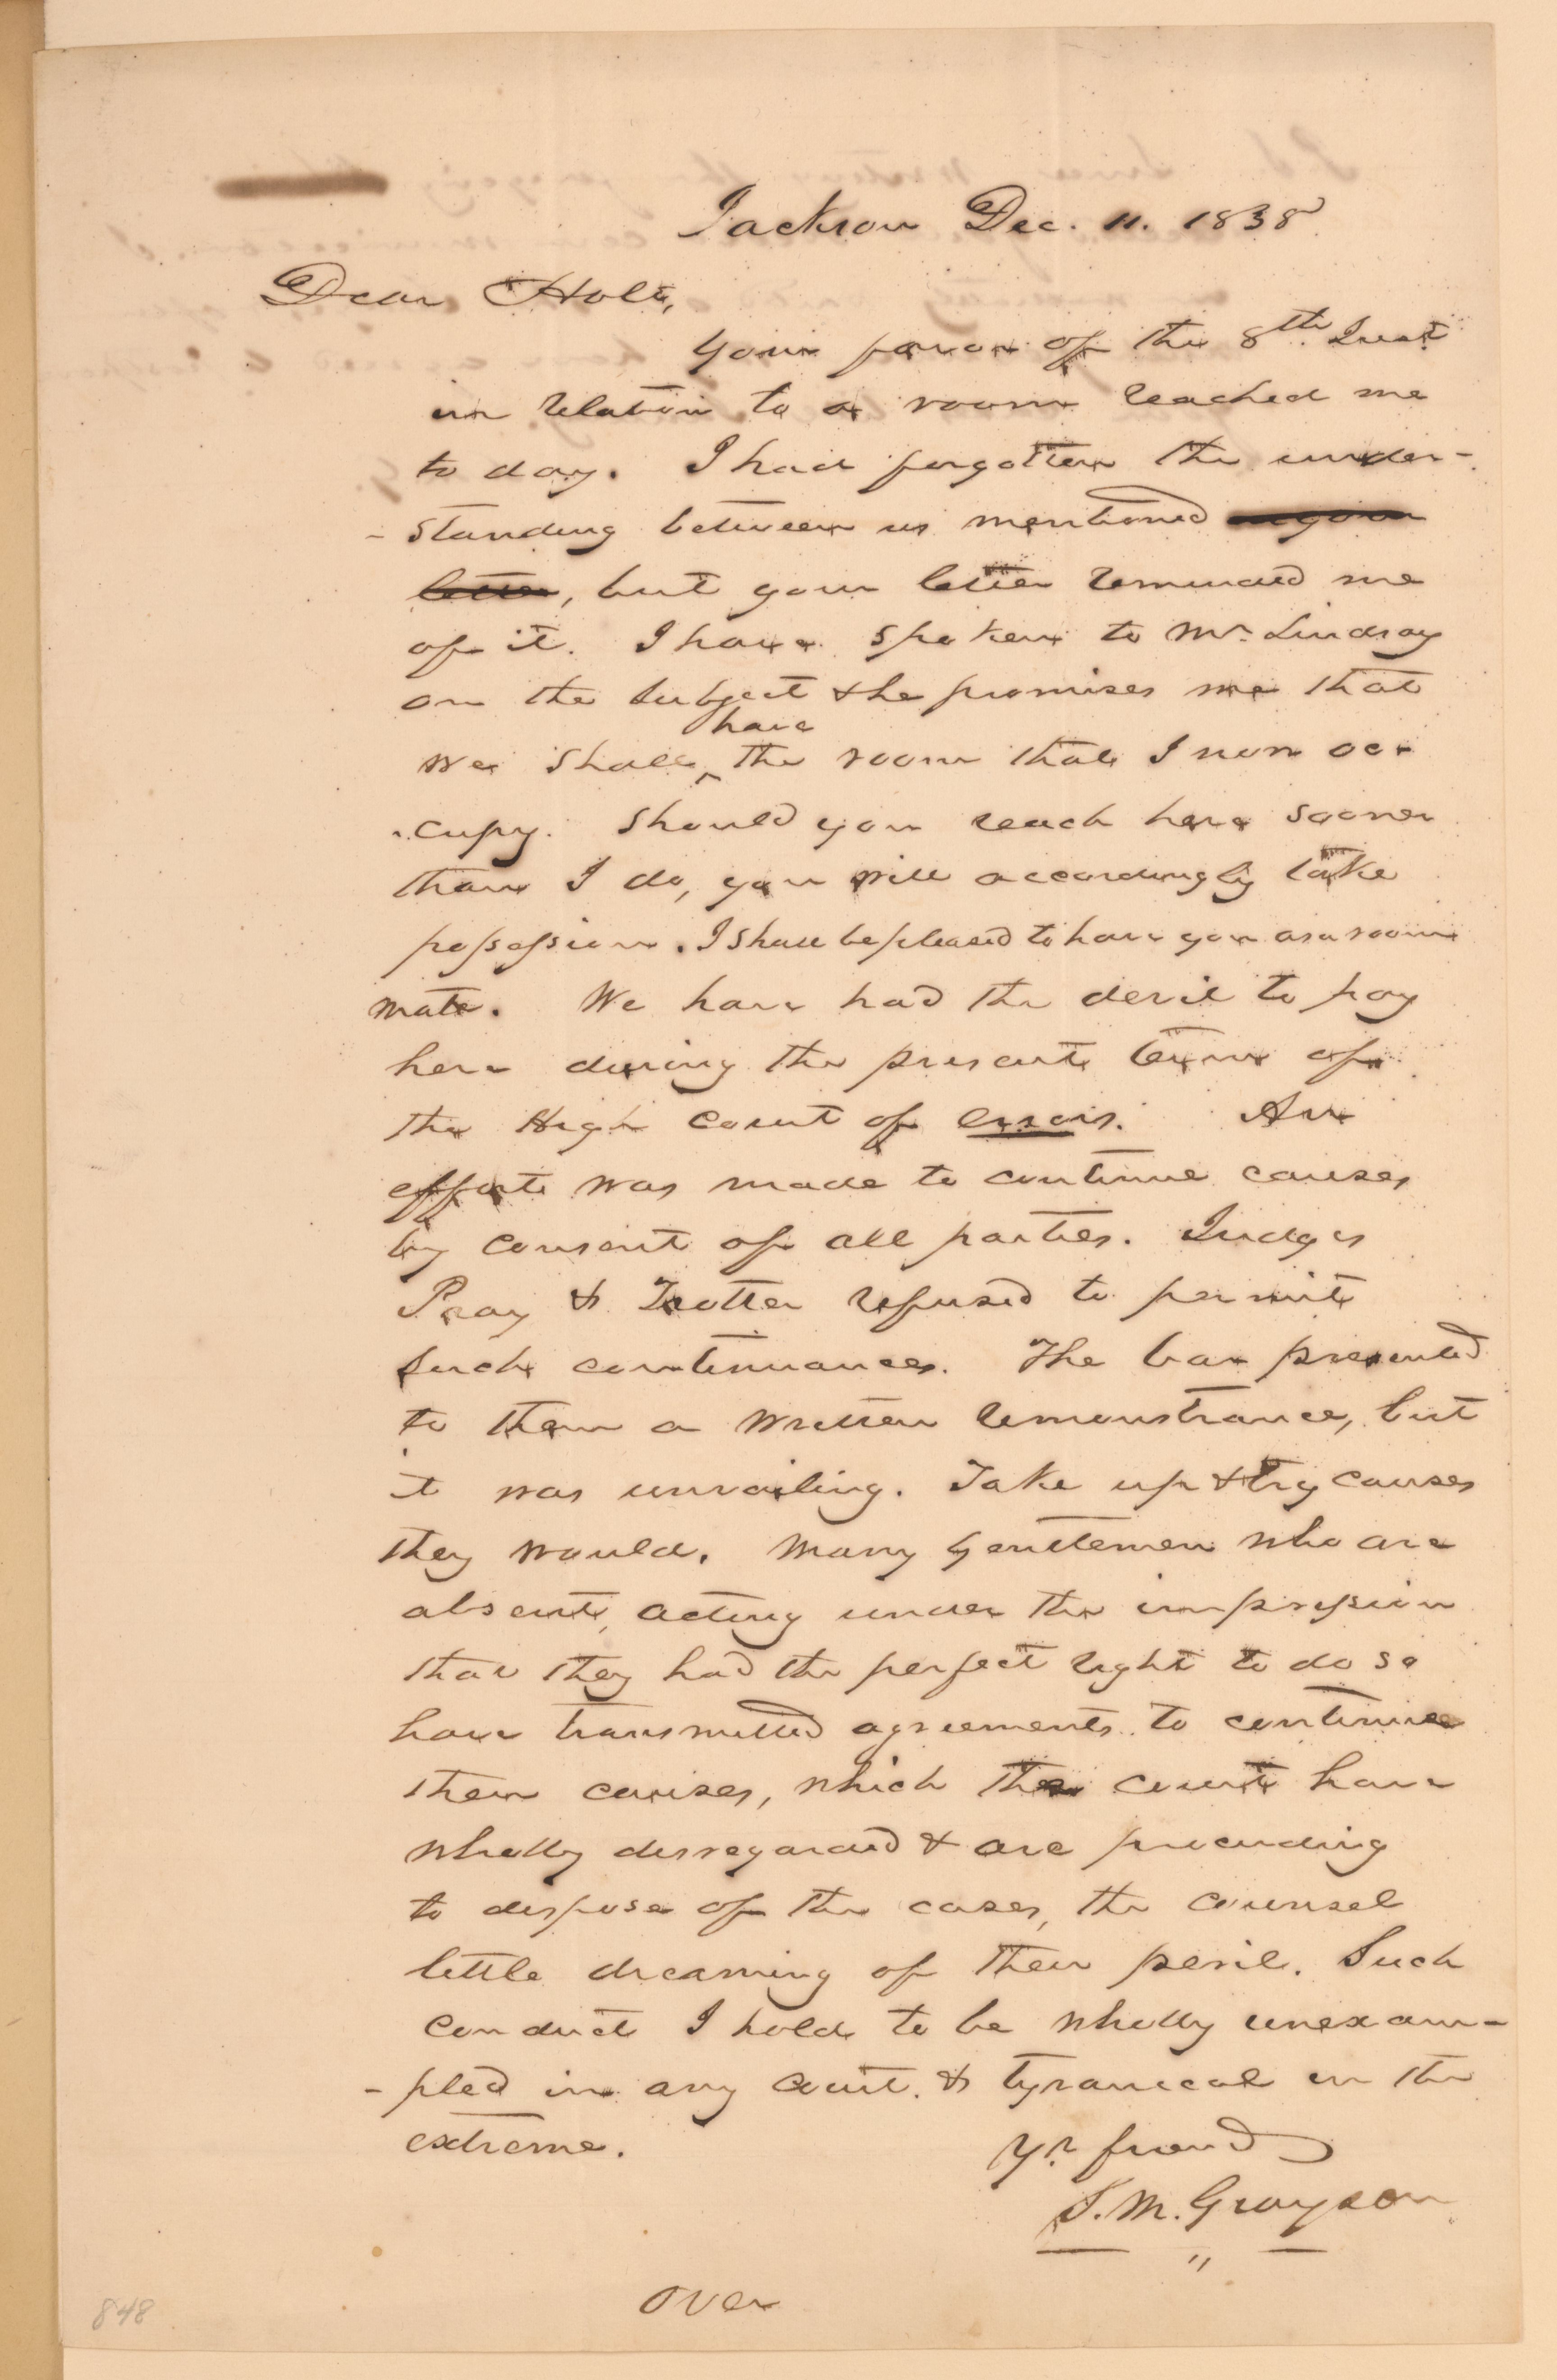 Jackson Dec. 11. 1838
Dear Holt,
Your favor of the 8th. Inst
in relation to a room reached me
to day. I had forgotten the under-
-standing between us mentioned in your
letter, but your letter reminded me
of it. I have spoken to Mr. Lindsay
on the subject & he promises me that
have
we shall ^ the room that I now oc-
-cupy. Should you reach here sooner
than I do, you will accordingly take
possession. I shall be pleased to have you as a room
mate. We have had the devil to pay
here during the present term of
the High Court of errors. An
effort was made to continue causes
by consent of all parties. Judges
Pray & Trotter refused to permit
such continuances. The bar presented
to them a written remonstrance, but
it was unvailing. Take up & try causes
they would. Many Gentlemen who are
absent, acting under the impression
that they had the perfect right to do so
have transmitted agreements to continue
their causes, which the court have
wholly disregarded & are proceeding
to dispose of the cases, the counsel
little dreaming of their peril. Such
conduct I hold to be wholly unexam-
-pled in any court. & tyranical in the
extreme.
Yr. friend
S. M. Grayson
over
848